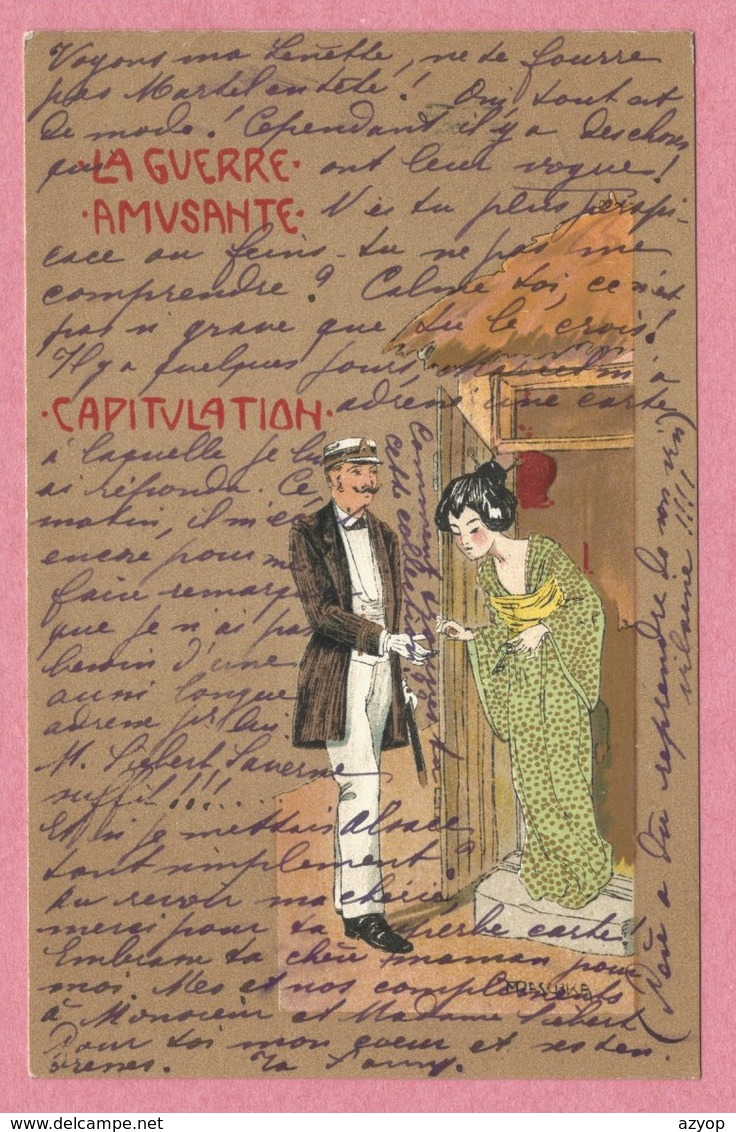 Voyons ma Lenette, ne te fourre
pas Martel en tête! Oui tout est
de mode! Cependant il y a des choses
qui ont leur vogues!
·LA GUERRE·
·AMUSANTE·
N'es tu plus perspi-
cace ou feins-tu ne pas me
comprendre? Calme toi, ce n'est
pas si grave que tu le crois!
Il y a quelques jours, Marcel m'a
·CAPITULATION·
adressé une carte
à laquelle je lui
ai répondu. Ce
matin, il m'é
encore pour me
faire remarquer
que je n'ai pas
besoin d'une
aussi longue
adresse pr lui
M. Siebert Saverne
suffit!!!....
Et si je mettais Alsace
tout simplement?
Au revoir ma chérie,
merci pour ta superbe carte!
Embrasse ta chère maman pour
moi. Mes et nos compliments
à Monsieur et Madame Siebert
Pour toi mon coeur et ses ten-
dresses. Ta
Comment
cette
(Papa a dû reprendre de son vin
vilaine!!!!)
MIESCHKE
azyop
delcampe.net